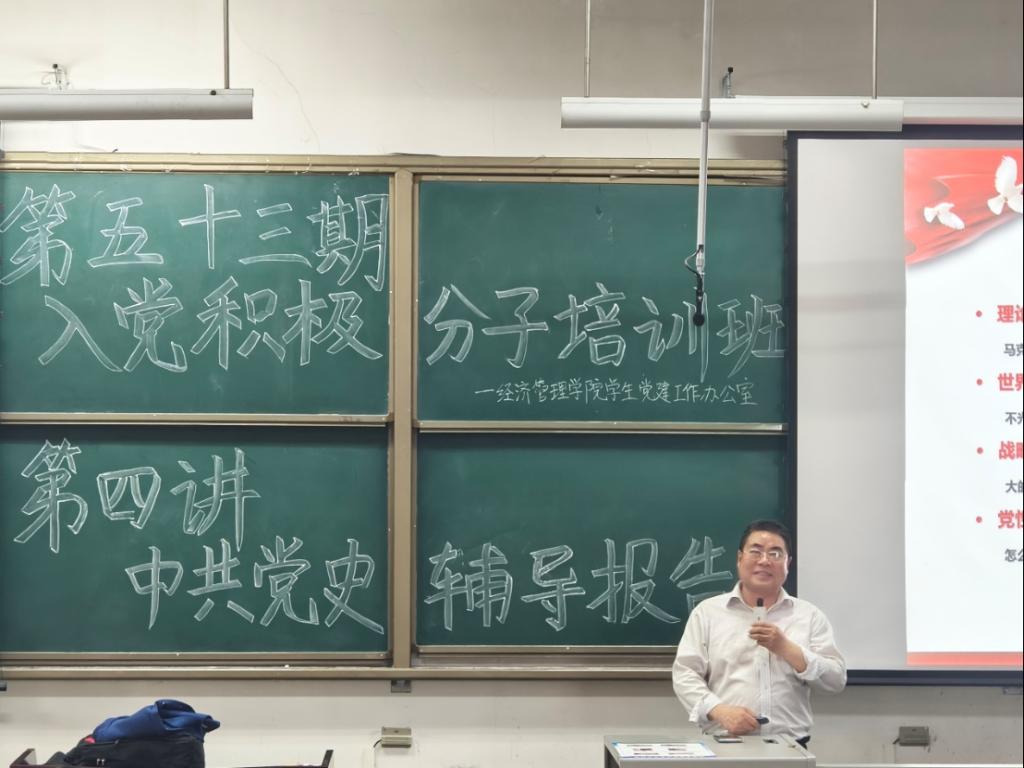 第五十三期
入党积极分子培训班
一经济管理学院学生党建工作办公室
第四讲
中共党史辅导报告
理论
马克
世界
不
战略
大的
党性
怎么